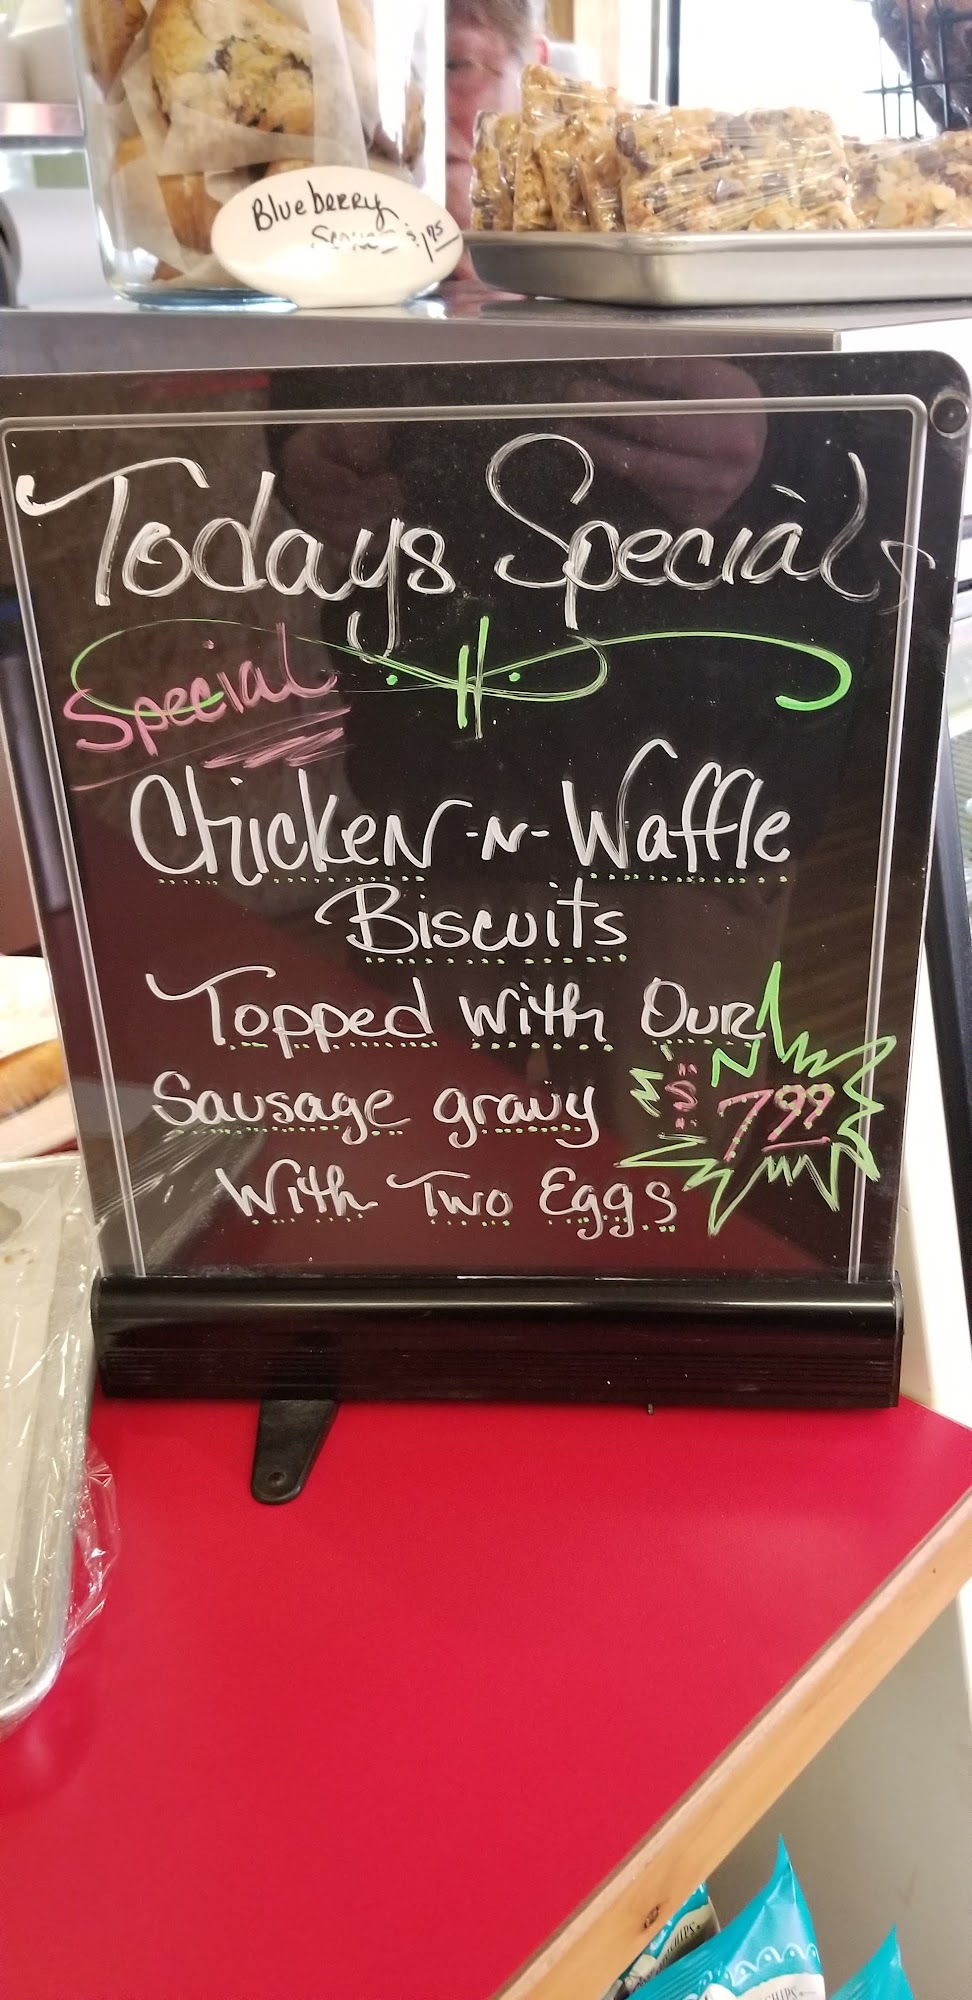 Blueberry
Scones $1.75
Todays Specials
Special
Chicken-N-Waffle
Biscuits
Topped With Our
Sausage gravy
$ 7.99
With Two Eggs
CHIPS